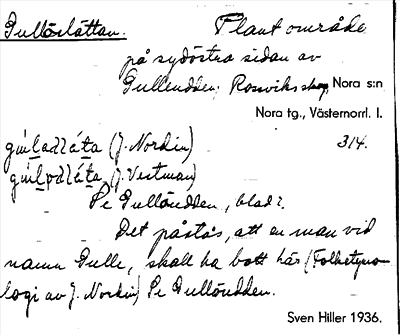 Gullöslåttan. Plant område
på sydöstra sidan av
Gullendden, Rosviks skog, Nora s:n
Nora tg., Västernorrl. l.
(J. Nordin) 314.
(J. Vestman)
Se Gullöudden, blad 2.
Det påstås, att en man vid
namn Gulle, skall ha bott här (Folketymo-
logi av J. Nordin) Se Gullöudden.
Sven Hiller 1936.